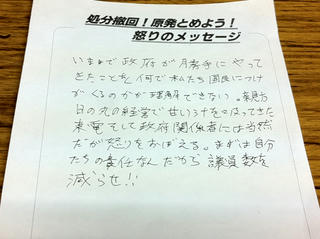 処分撤回！原発とめよう！
怒りのメッセージ
いままで政府が勝手にやって
きたことを何で私たち国民につけ
がくるのかが理解できない。親方
日の丸の経営で甘い汁をすってきた
東電そして政府関係者には当然
だが怒りをおぼえる。まずは自分
たちの責任なんだから議員数を
減らせ!!